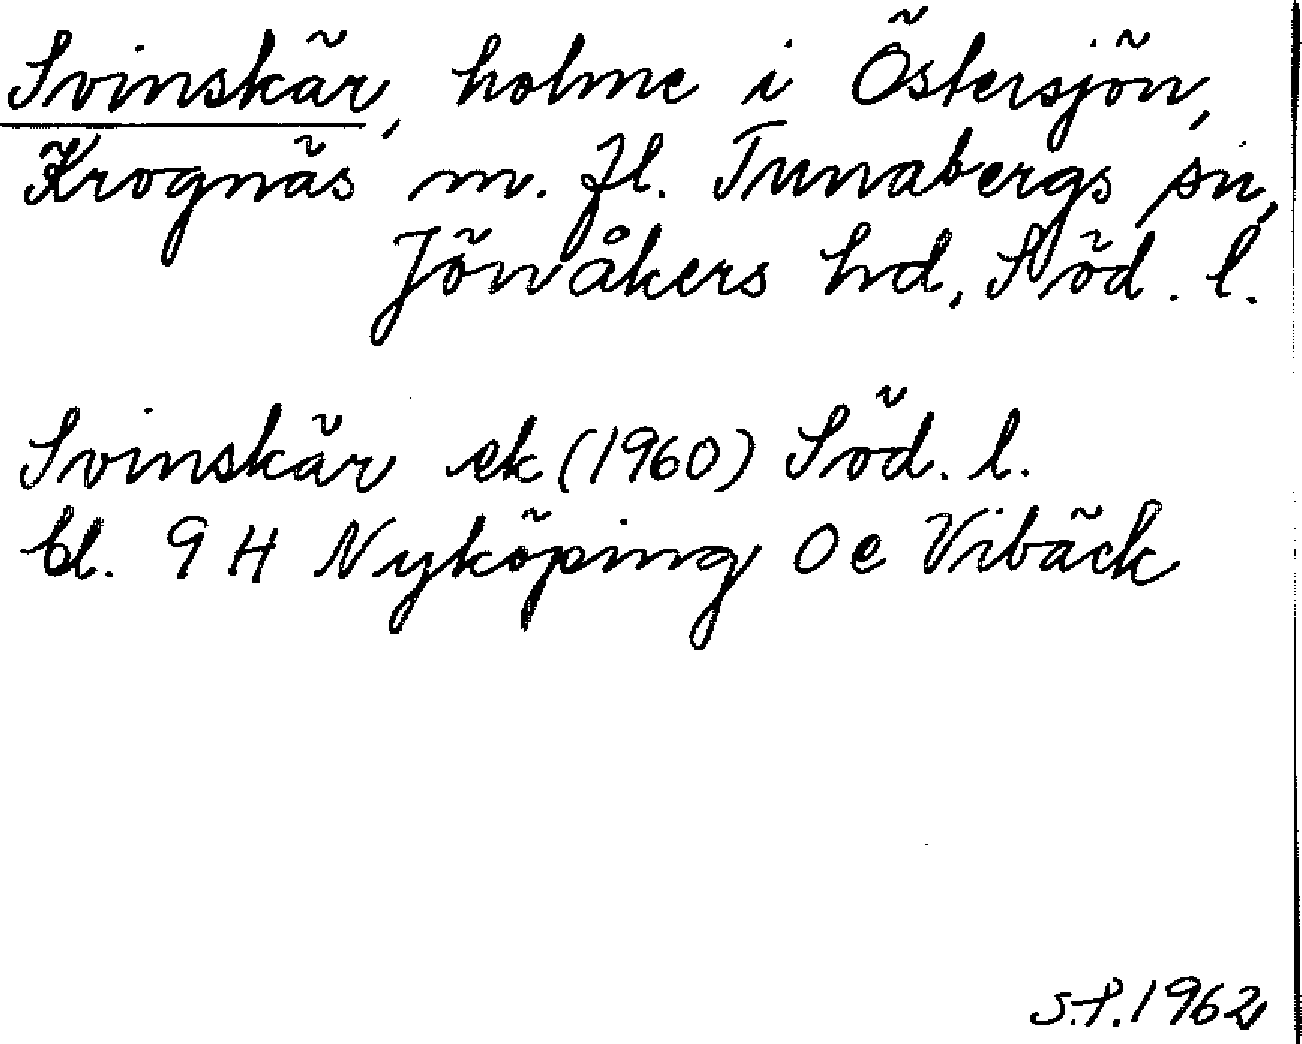 Svinskär, holme i Östersjön,
Krognäs m. fl. Tunabergs sn,
Jönåkers hd, Söd. l.
Svinskär ek (1960) Söd. l.
bl. 9 H Nyköping 0 e Vibäck
S.S. 1962